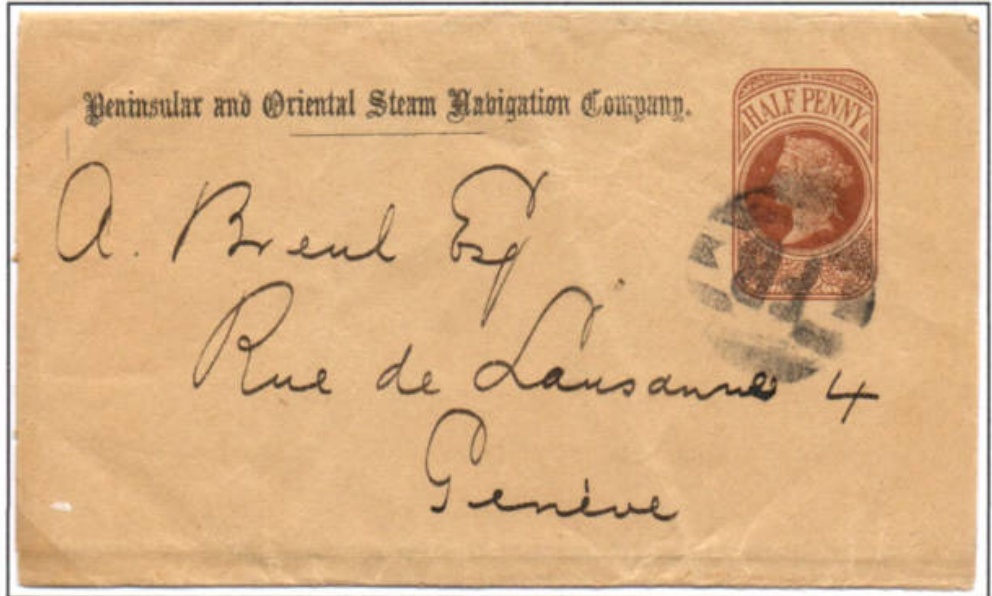 Peninsular and Oriental Steam Navigation Company.
HALF PENNY
A. Breul Esq
Rue de Lausanne 4
Genève